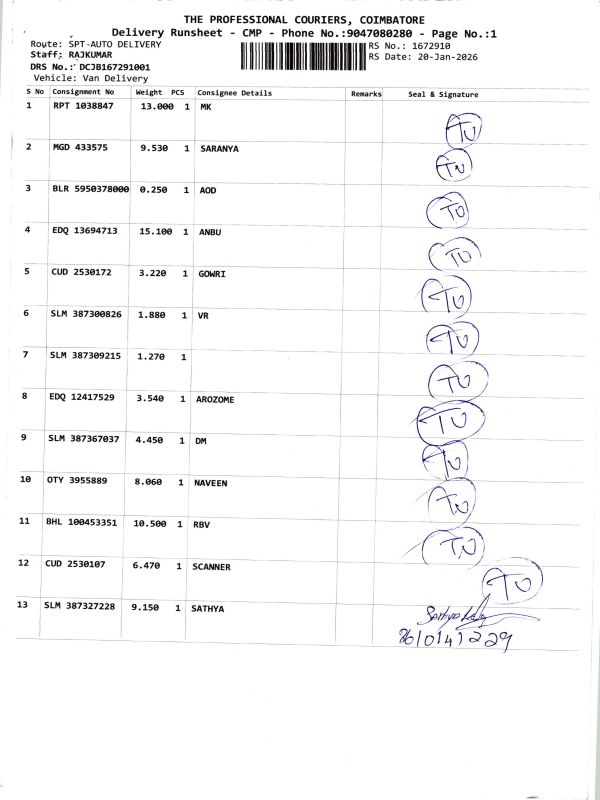 THE PROFESSIONAL COURIERS, COIMBATORE
Delivery Runsheet - CMP - Phone No.:9047080280 - Page No.:1
Route: SPT-AUTO DELIVERY RS No.: 1672910
Staff: RAJKUMAR RS Date: 20-Jan-2026
DRS No.: DCJB167291001
Vehicle: Van Delivery
S No Consignment No Weight PCS Consignee Details Remarks Seal & Signature
1 RPT 1038847 13.000 1 MK TU
2 MGD 433575 9.530 1 SARANYA TU
3 BLR 5950378000 0.250 1 AOD TU
4 EDQ 13694713 15.100 1 ANBU TU
5 CUD 2530172 3.220 1 GOWRI TU
6 SLM 387300826 1.880 1 VR TU
7 SLM 387309215 1.270 1 TU
8 EDQ 12417529 3.540 1 AROZOME TU
9 SLM 387367037 4.450 1 DM TU
10 OTY 3955889 8.060 1 NAVEEN TU
11 BHL 100453351 10.500 1 RBV TU
12 CUD 2530107 6.470 1 SCANNER TU
13 SLM 387327228 9.150 1 SATHYA